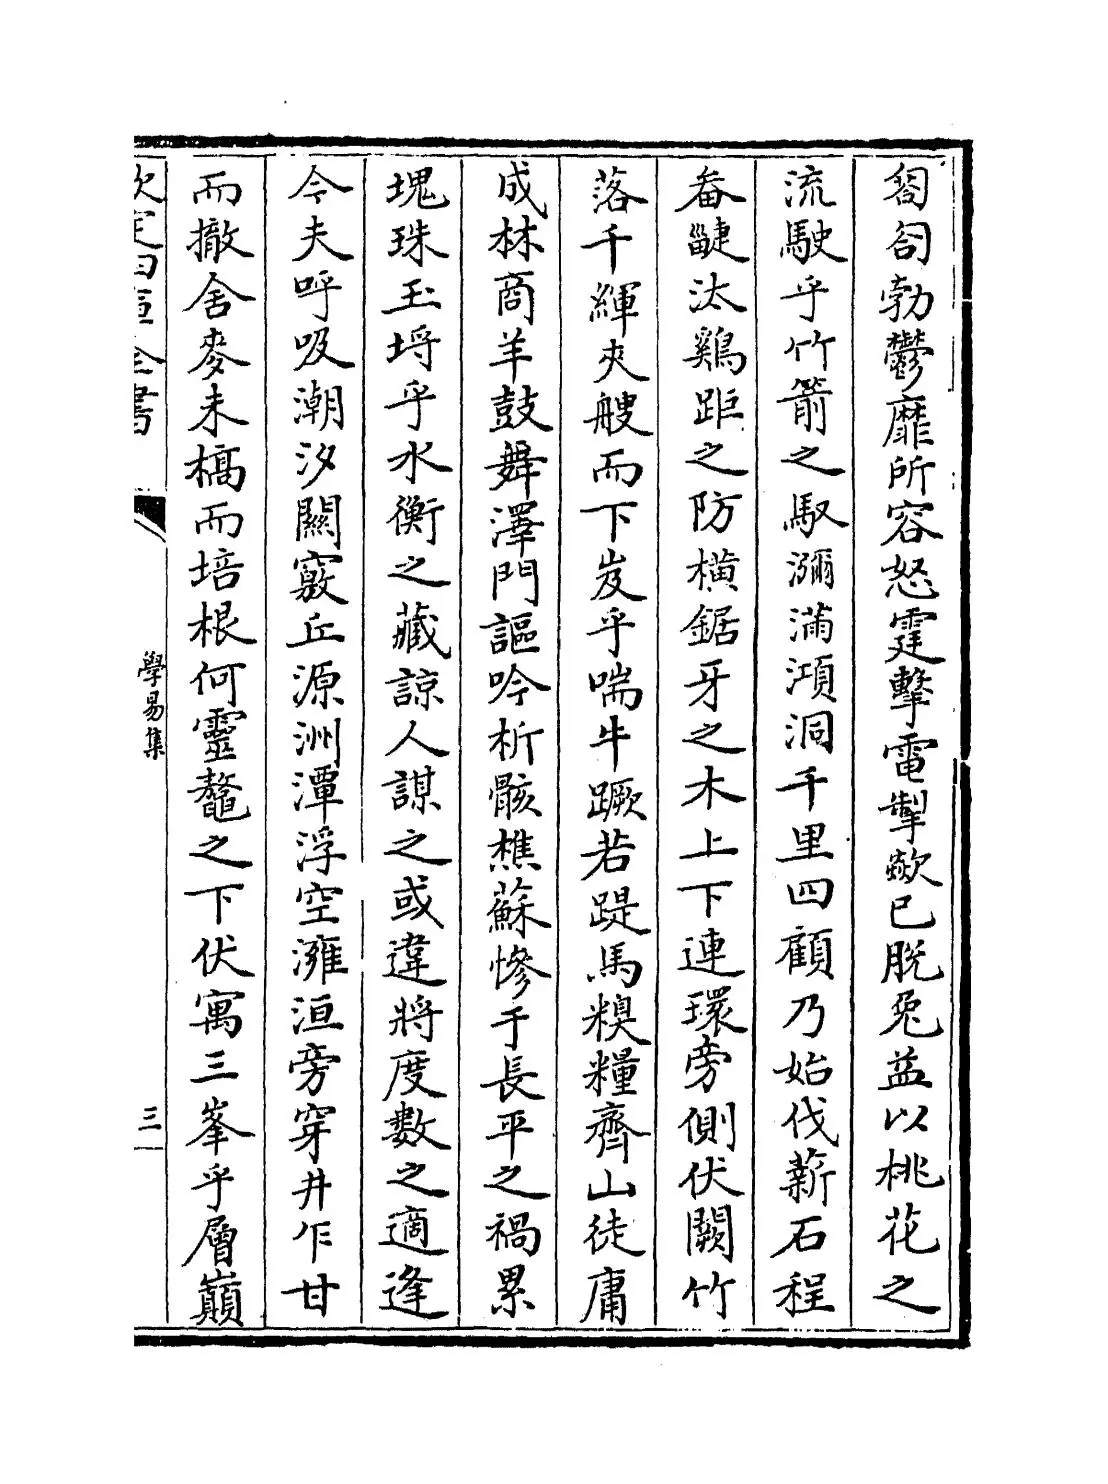 匌匒勃鬱靡所容怒霆擊電掣歘已脫兔益以桃花之
流駛乎竹箭之馭瀰滿澒洞千里四顧乃始伐薪石程
畚疀汰鷄距之防橫鋸牙之木上下連環旁側伏闕竹
落千緷夾艘而下岌乎喘牛蹶若踶馬糗糧齊山徒庸
成林商羊鼓舞澤門謳吟析骸樵蘇慘于長平之禍累
塊珠玉埒乎水衡之藏諒人謀之或違將度數之適逢
今夫呼吸潮汐闕竅丘源洲潭浮空灉洹旁穿井乍甘
而撤舍麥未槁而培根何靈鼇之下伏寓三峯乎層巔
欽定四庫全書
學易集
三